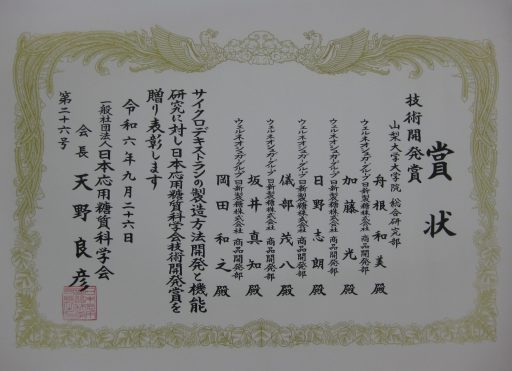 賞状
技術開発賞
山梨大学大学院 総合研究部
舟根和美殿
ウェルネオシュガーグループ 日新製糖株式会社 商品開発部
加藤 光殿
ウェルネオシュガーグループ 日新製糖株式会社 商品開発部
日野志朗殿
ウェルネオシュガーグループ 日新製糖株式会社 商品開発部
儀部茂八殿
ウェルネオシュガーグループ 日新製糖株式会社 商品開発部
坂井真知殿
ウェルネオシュガーグループ 日新製糖株式会社 商品開発部
岡田和之殿
サイクロデキストランの製造方法開発と機能
研究に対し日本応用糖質科学会技術開発賞を
贈り表彰します
令和六年九月二十六日
一般社団法人日本応用糖質科学会
会長 天野良彦
第二十六号